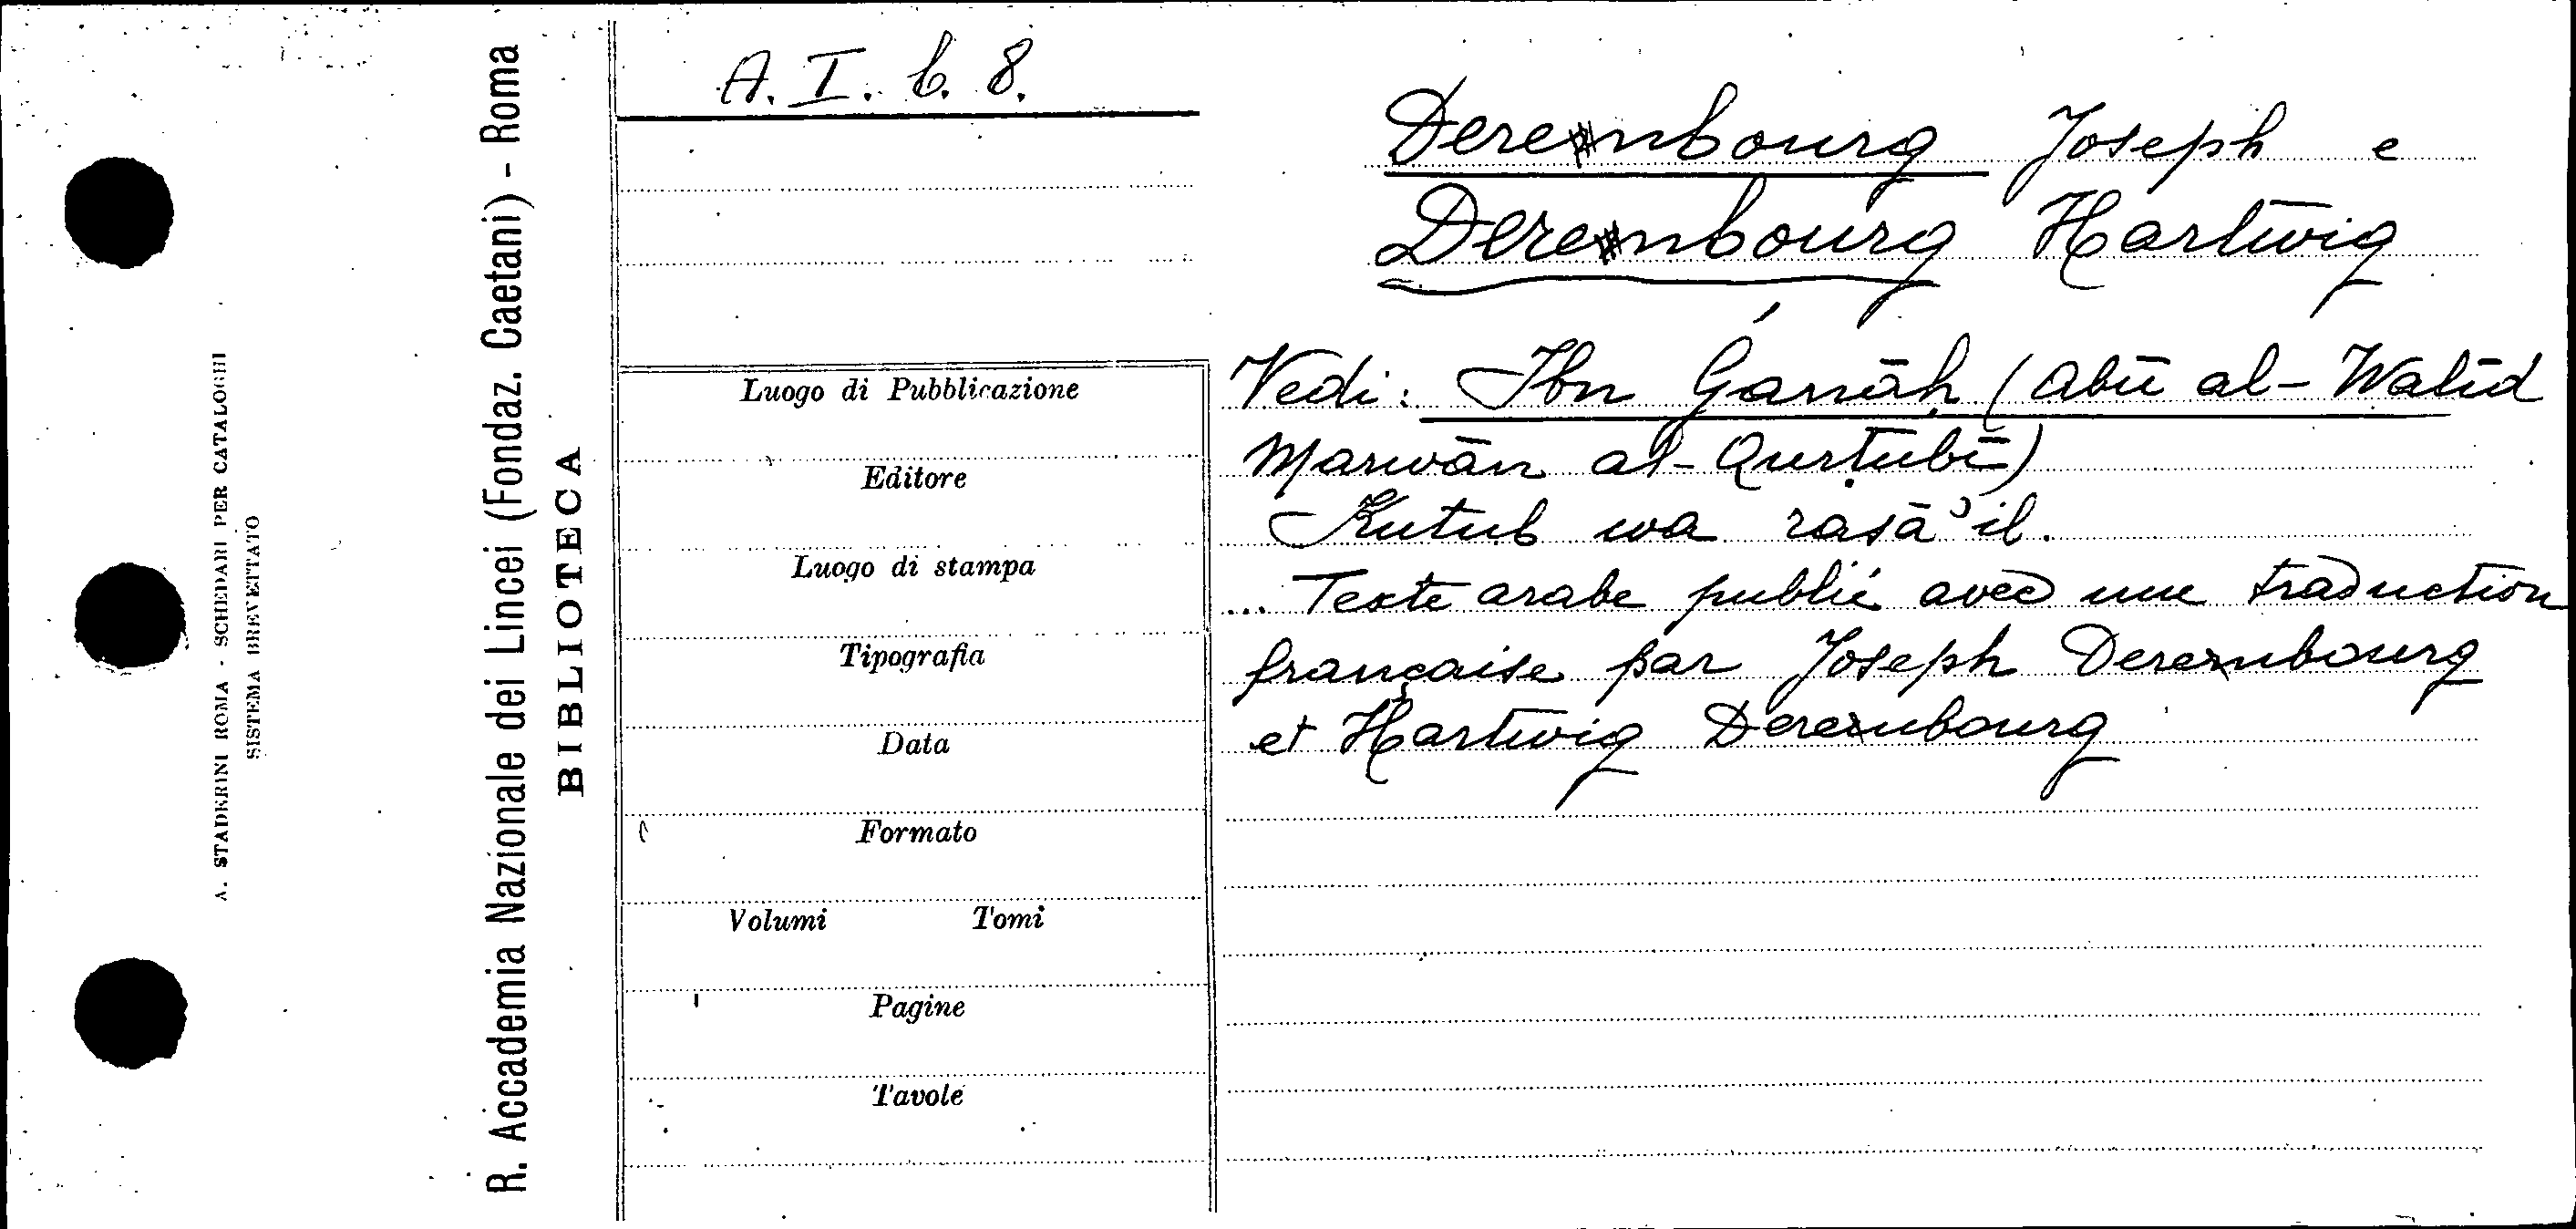 A. STADERINI ROMA - SCHEDARI PER CATALOGHI
SISTEMA BREVETTATO
R. Accademia Nazionale dei Lincei (Fondaz. Caetani) - Roma
BIBLIOTECA
A. I. b. 8.
Luogo di Pubblicazione
Editore
Luogo di stampa
Tipografia
Data
Formato
Volumi Tomi
Pagine
Tavole
Derenbourg Joseph e
Derenbourg Hartwig
Vedi: Ibn Ǵanāḥ (Abū al-Walīd
Marwān al-Qurṭubī)
Kutub wa rasā'il.
... Texte arabe publié avec une traduction
française par Joseph Derenbourg
et Hartwig Derenbourg